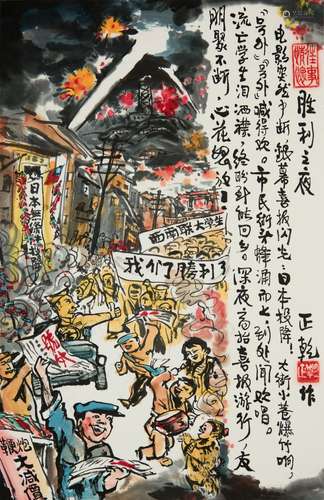 胜利之夜
电影突然中断,银幕喜报闪光:日本投降!大街小巷爆竹响,
"号外""号外"喊得欢。市民街头蜂涌而上,到处闻欢唱。
流亡学生泪洒襟,终盼到能回乡。深夜高招喜报游行,友
朋聚不断,心花怒放!
正乾
作
西南联大学生
我们勝利了
日本無條件投降
号外
鞭炮
大减價